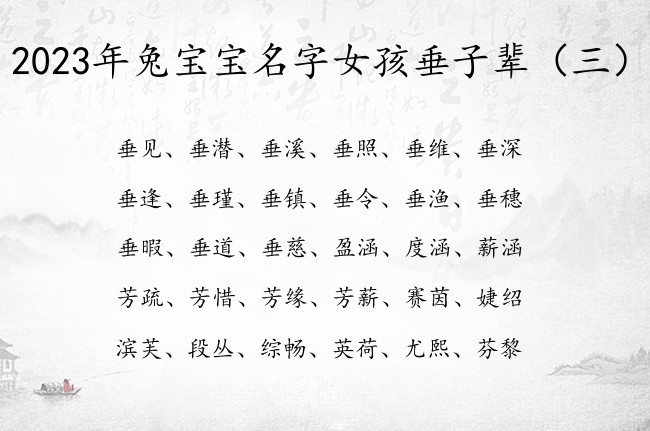 2023年兔宝宝名字女孩垂子辈（三）
垂见、垂潜、垂溪、垂照、垂维、垂深
垂逢、垂瑾、垂镇、垂令、垂渔、垂穗
垂暇、垂道、垂慈、盈涵、度涵、薪涵
芳疏、芳惜、芳缘、芳薪、赛茵、婕绍
滨芙、段丛、综畅、英荷、尤熙、芬黎